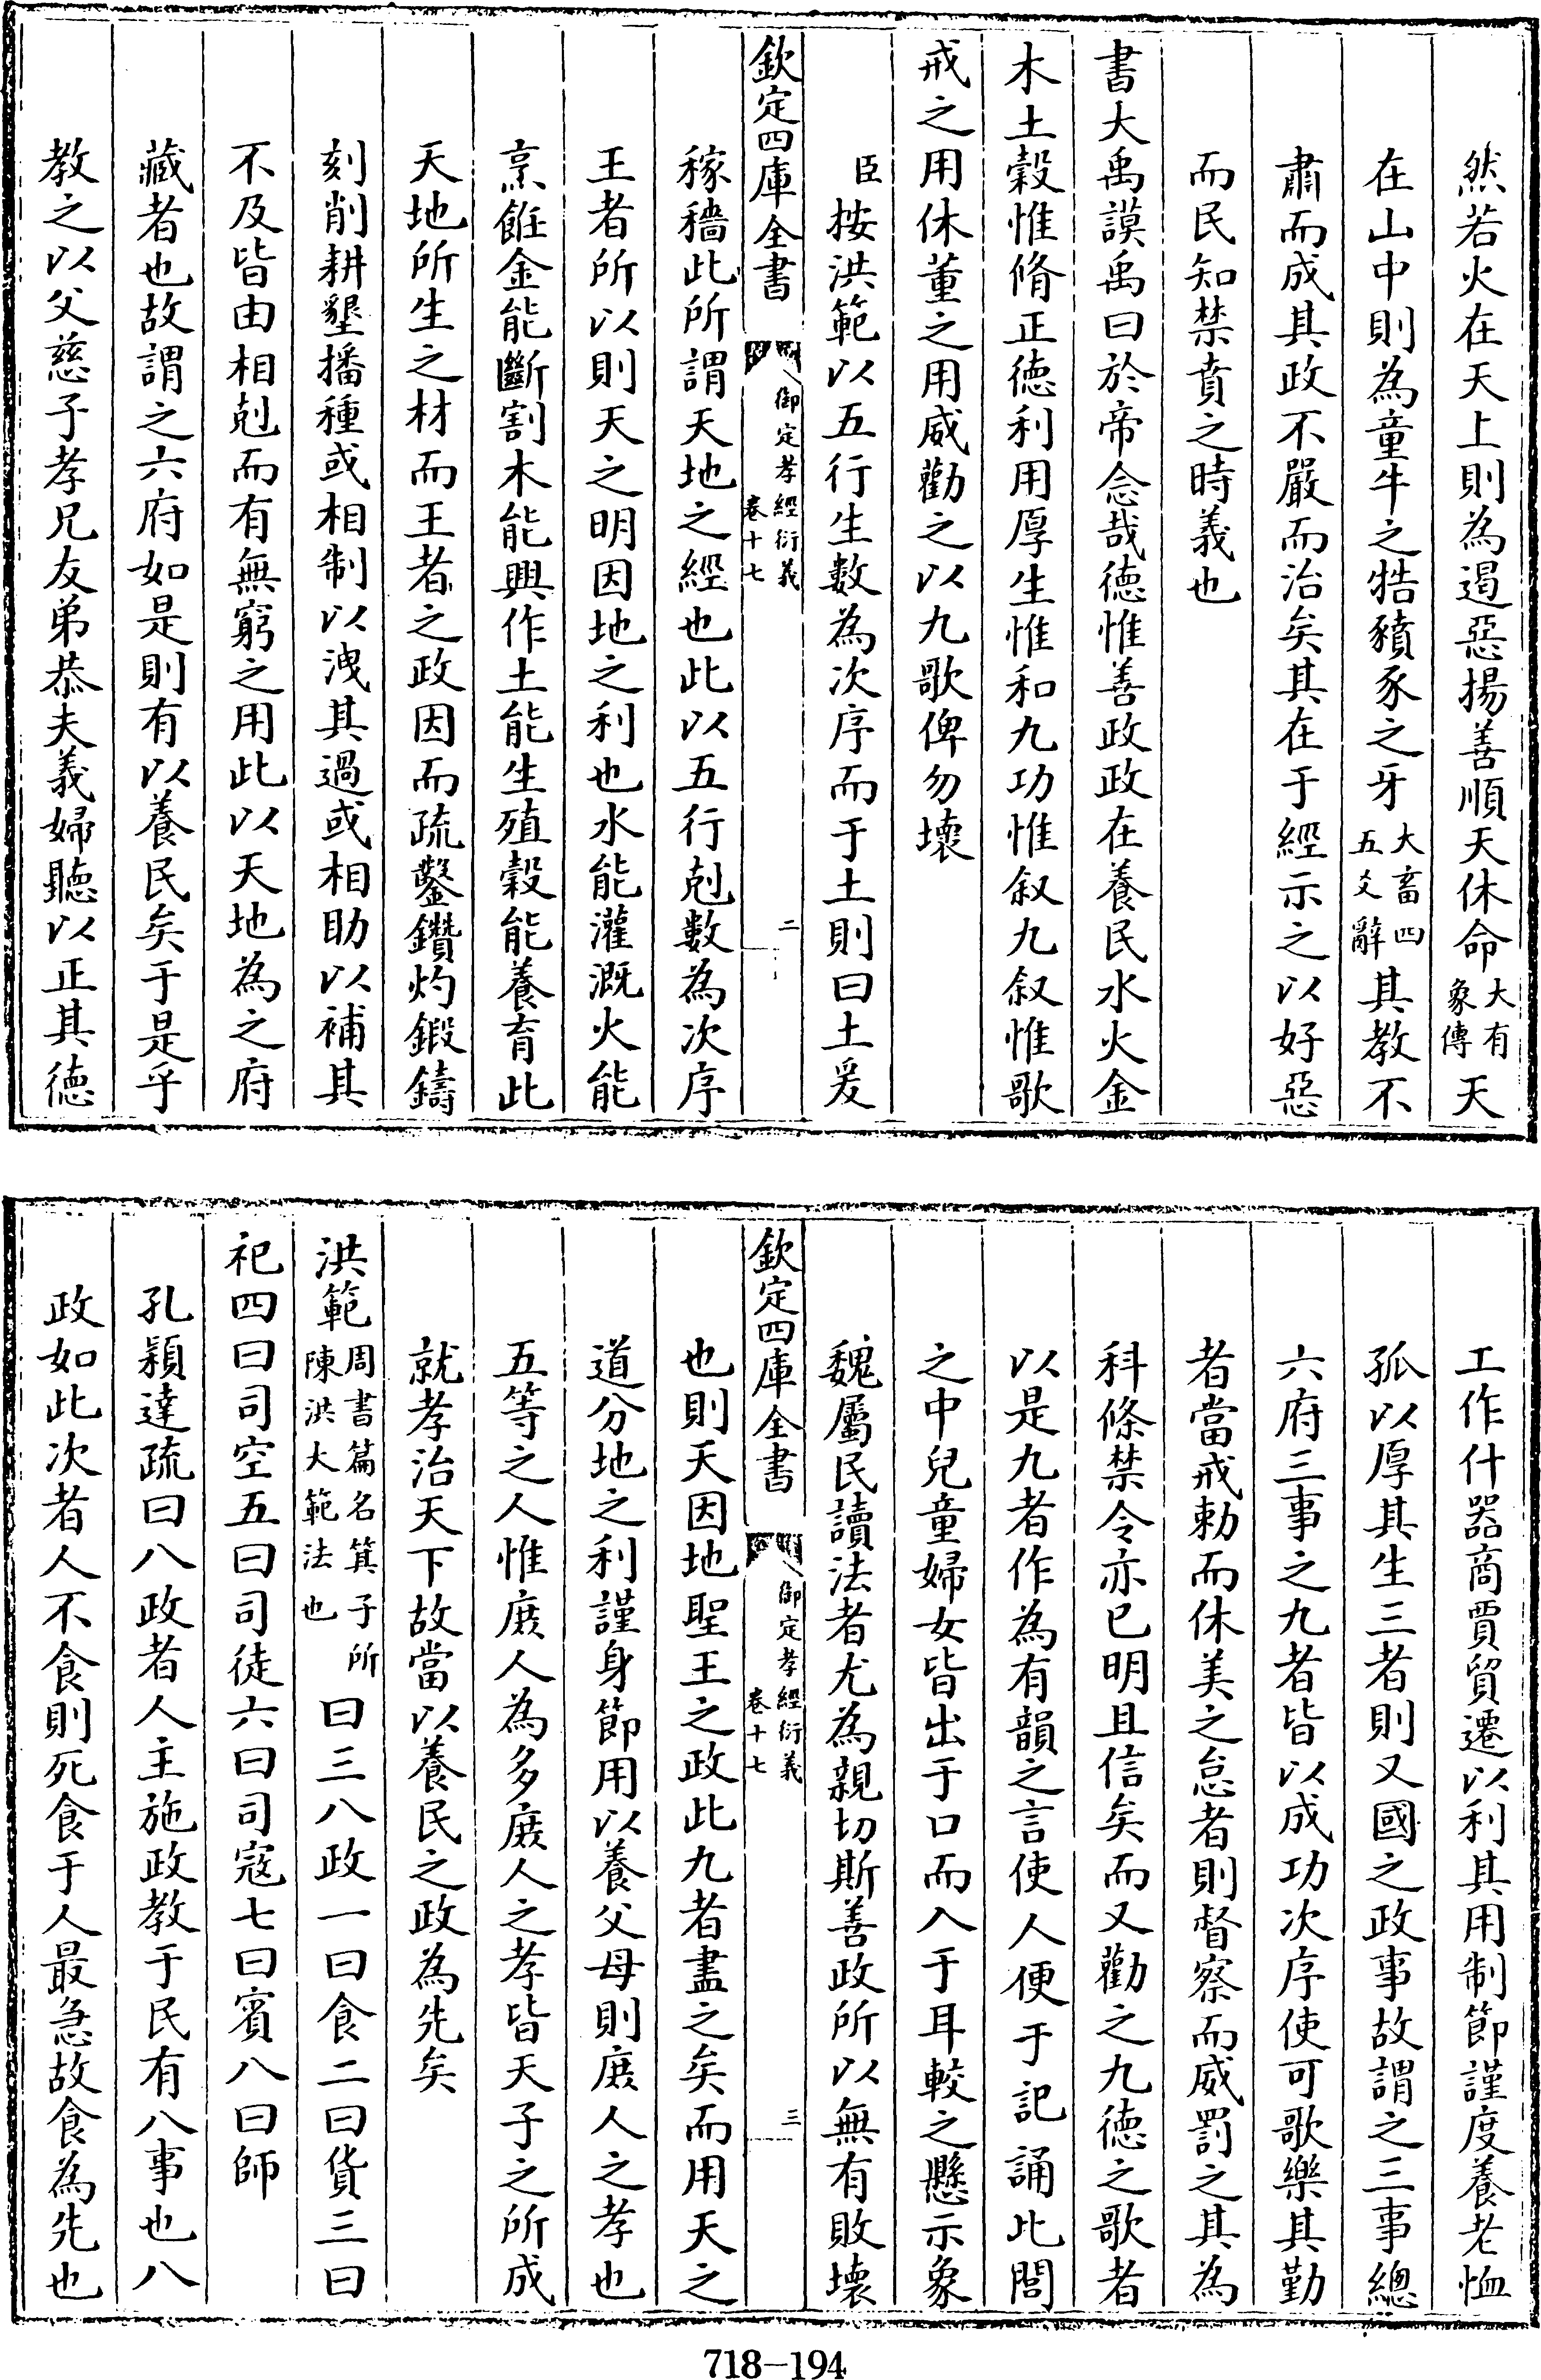 然若火在天上則為遏惡揚善順天休命大有象傳天
在山中則為童牛之牿豶豕之牙大畜四五爻辭其教不
肅而成其政不嚴而治矣其在于經示之以好惡
而民知禁賁之時義也
書大禹謨禹曰於帝念哉德惟善政政在養民水火金
木土榖惟脩正德利用厚生惟和九功惟叙九叙惟歌
戒之用休董之用威勸之以九歌俾勿壞
臣按洪範以五行生數為次序而于土則曰土爰
欽定四庫全書 御定孝經衍義 卷十七 二
稼穡此所謂天地之經也此以五行剋數為次序
王者所以則天之明因地之利也水能灌溉火能
烹飪金能斷割木能興作土能生殖榖能養育此
天地所生之材而王者之政因而疏鑿鑽灼鍜鑄
刻削耕墾播種或相制以洩其過或相助以補其
不及皆由相剋而有無窮之用此以天地為之府
藏者也故謂之六府如是則有以養民矣于是乎
教之以父慈子孝兄友弟恭夫義婦聽以正其德
工作什器商賈貿遷以利其用制節謹度養老恤
孤以厚其生三者則又國之政事故謂之三事總
六府三事之九者皆以成功次序使可歌樂其勤
者當戒勅而休美之怠者則督察而威罰之其為
科條禁令亦已明且信矣而又勸之九德之歌者
以是九者作為有韻之言使人便于記誦此閭
之中兒童婦女皆出于口而入于耳較之懸示象
魏屬民讀法者尤為親切斯善政所以無有敗壞
欽定四庫全書 御定孝經衍義 卷十七 三
也則天因地聖王之政此九者盡之矣而用天之
道分地之利謹身節用以養父母則庻人之孝也
五等之人惟庻人為多庻人之孝皆天子之所成
就孝治天下故當以養民之政為先矣
洪範周書篇名箕子所陳洪大範法也曰三八政一曰食二曰貨三曰
祀四曰司空五曰司徒六曰司寇七曰賓八曰師
孔穎達疏曰八政者人主施政教于民有八事也八
政如此次者人不食則死食于人最急故食為先也
718-194